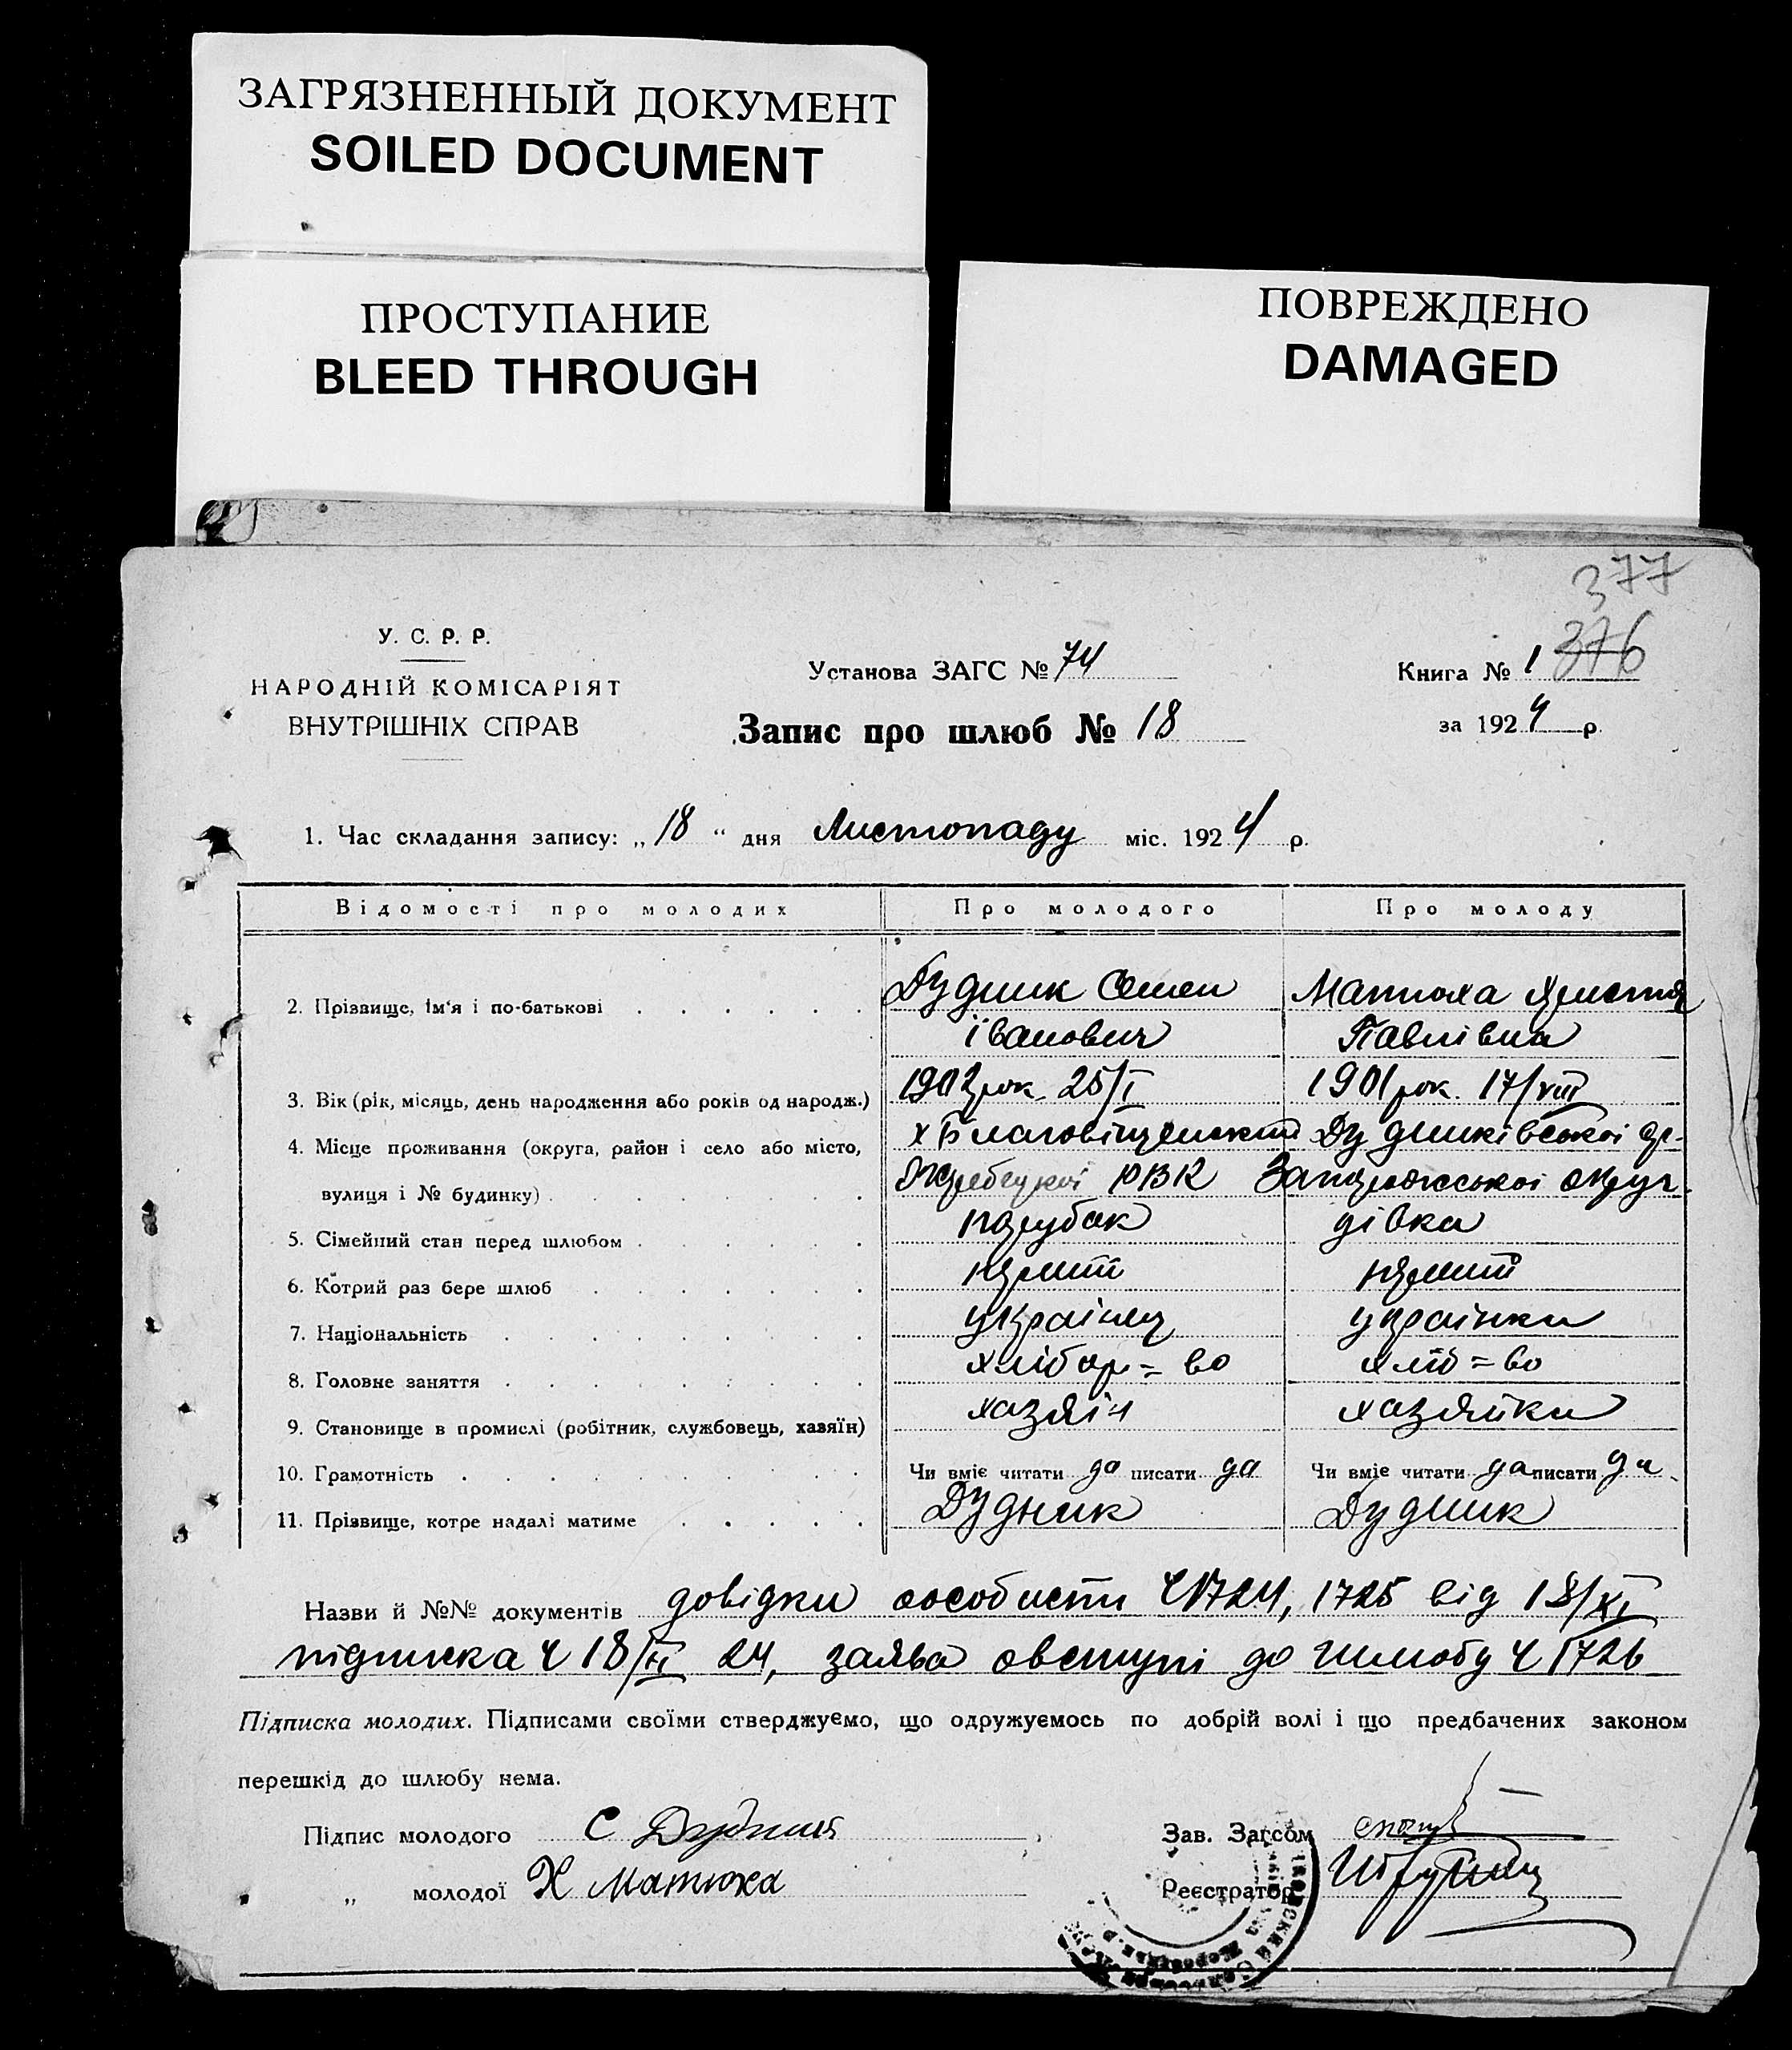 ЗАГРЯЗНЕННЫЙ ДОКУМЕНТ
SOILED DOCUMENT
ПРОСТУПАНИЕ
BLEED THROUGH
ПОВРЕЖДЕНО
DAMAGED
377
376
У. С. Р. Р.
НАРОДНІЙ КОМІСАРІЯТ
ВНУТРІШНІХ СПРАВ
Установа ЗАГС № 74
Запис про шлюб № 18
Книга № 1
за 1924 р
1. Час складання запису: „18“ дня Листопаду міс. 1924 р.
Відомості про молодих Про молодого Про молоду
2. Прізвище, ім'я і по-батькові Дудник Семен Матюха
Іванович Павлівна
3. Вік (рік, місяць, день народження або років од народж.) 1902 рок 25/I 1901 рок. 17/VIII
4. Місце проживання (округа, район і село або місто, х Благовіщенський Дудниківської
вулиця і № будинку) Жеребецкої РВК Запоріжської округ.
5. Сімейний стан перед шлюбом парубок дівка
6. Котрий раз бере шлюб перший перший
7. Національність українец українка
8. Головне заняття хлібор=во хліб=во
9. Становище в промислі (робітник, службовець, хазяїн) хазяін хазяйка
10. Грамотність Чи вміє читати да писати да Чи вміє читати да писати да
11. Прізвище, котре надалі матиме Дудник Дудник
Назви й №№ документів довідки особисти Ч 1724, 1725 від 18/XI
підписка Ч 18/XI 24, заява о вступі до шлюбу Ч 1726
Підписка молодих. Підписами своїми стверджуємо, що одружуємось по добрій волі і що предбачених законом
перешкід до шлюбу нема.
Підпис молодого С Дудник
Зав. Загсом
„ молодої Х Матюха
Реєстратор